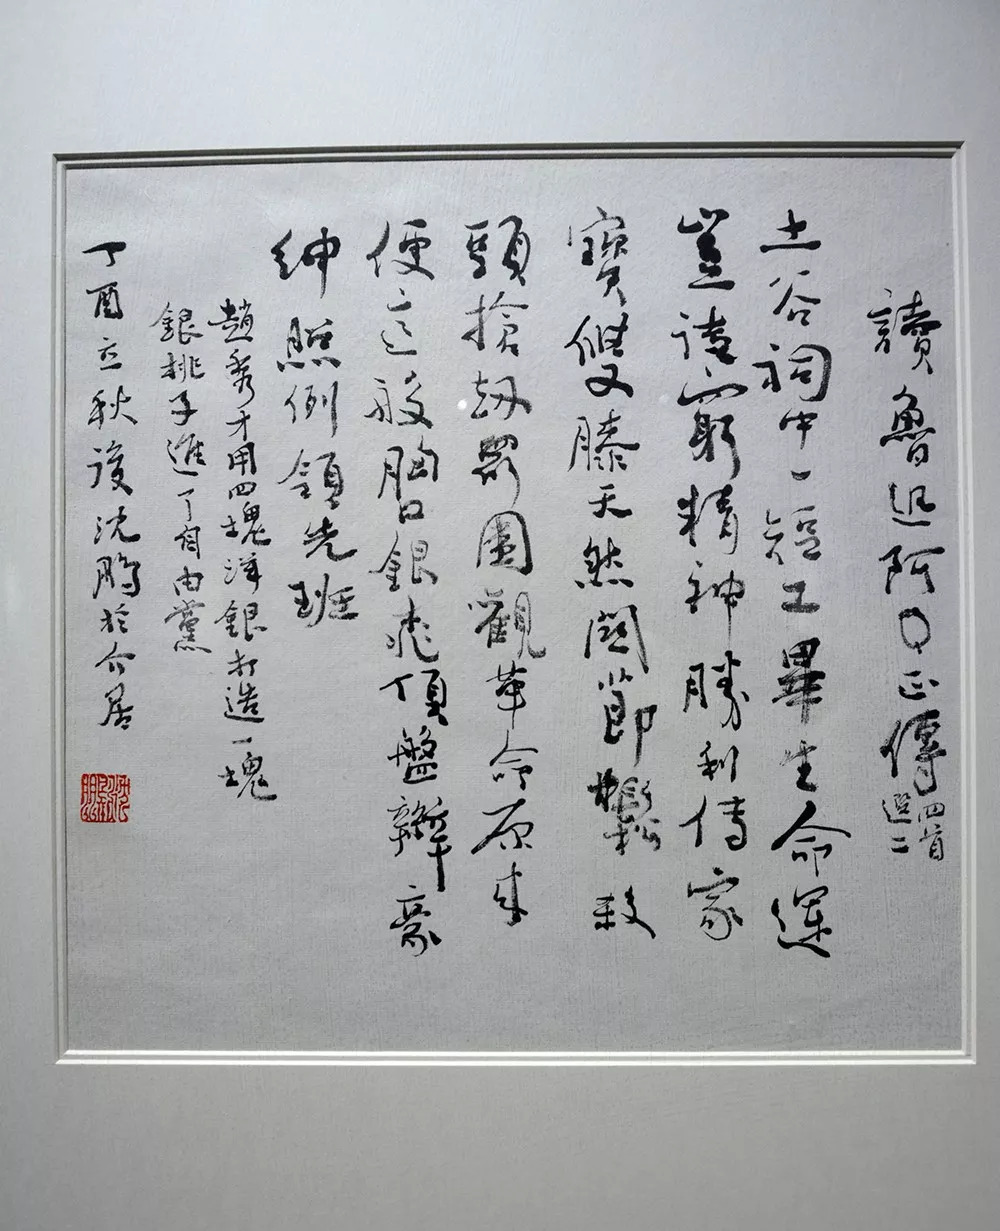 讀魯迅阿Q正傳 四首選二
土谷祠中一短工畢生命運
豈諱窮精神勝利傳家
寶雙膝天然關節鬆殺
頭搶劫眾圍觀革命原來
便這般胸口銀桃頂盤辮豪
紳照例領先班
趙秀才用四塊洋銀打造一塊
銀桃子進了自由黨
丁酉立秋後沈鵬於介居